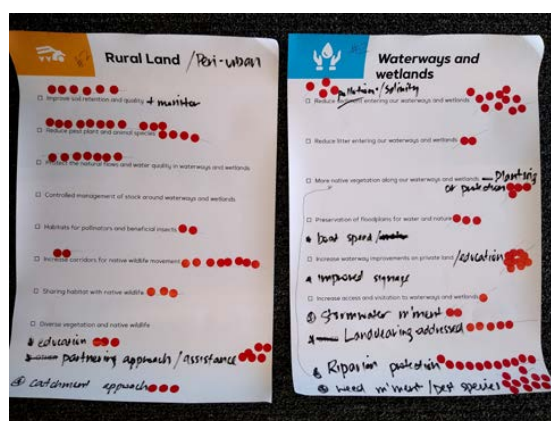 Rural Land / Peri-urban
□ Improve soil retention and quality + monitor
□ Reduce pest plant and animal species
□ Protect the natural flows and water quality in waterways and wetlands
□ Controlled management of stock around waterways and wetlands
□ Habitats for pollinators and beneficial insects
□ Increase corridors for native wildlife movement
□ Sharing habitat with native wildlife
□ Diverse vegetation and native wildlife
education
partnering approach / assistance
catchment approach
Waterways and
wetlands
pollution / salinity
□ Reduce entering our waterways and wetlands
□ Reduce litter entering our waterways and wetlands
□ More native vegetation along our waterways and wetlands – Planting
or protection
□ Preservation of floodplains for water and nature
boat speed /
□ Increase waterway improvements on private land / education
improved signage
□ Increase access and visitation to waterways and wetlands
Stormwater m'ment
Landclearing addressed
Riparian protection
weed m'ment / pest species